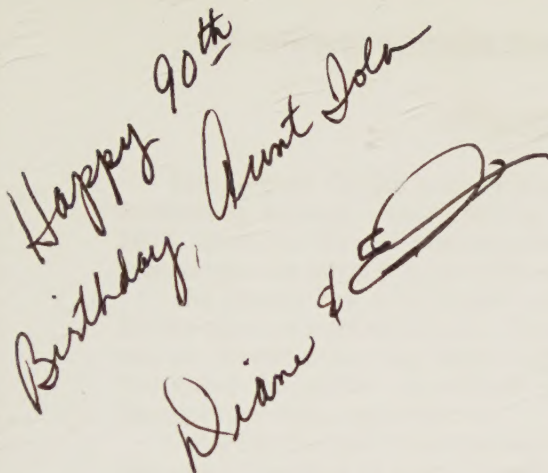 Happy 90th
Birthday, Aunt Iola
Diane &